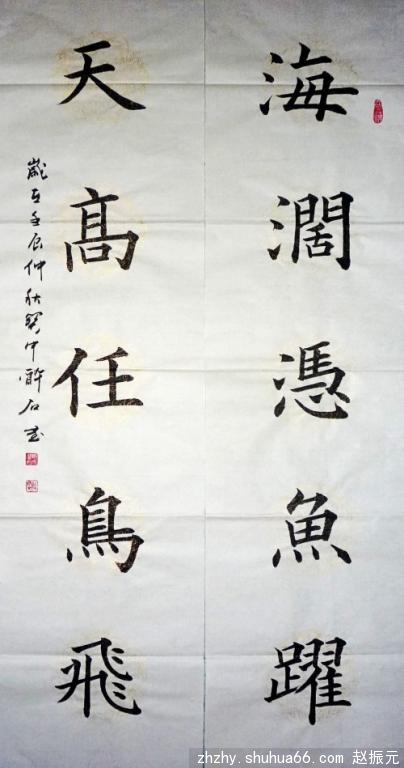 海濶憑魚躍
天髙任鳥飛
歲在壬辰仲秋關中醉石書
zhzhy.shuhua66.com 赵振元